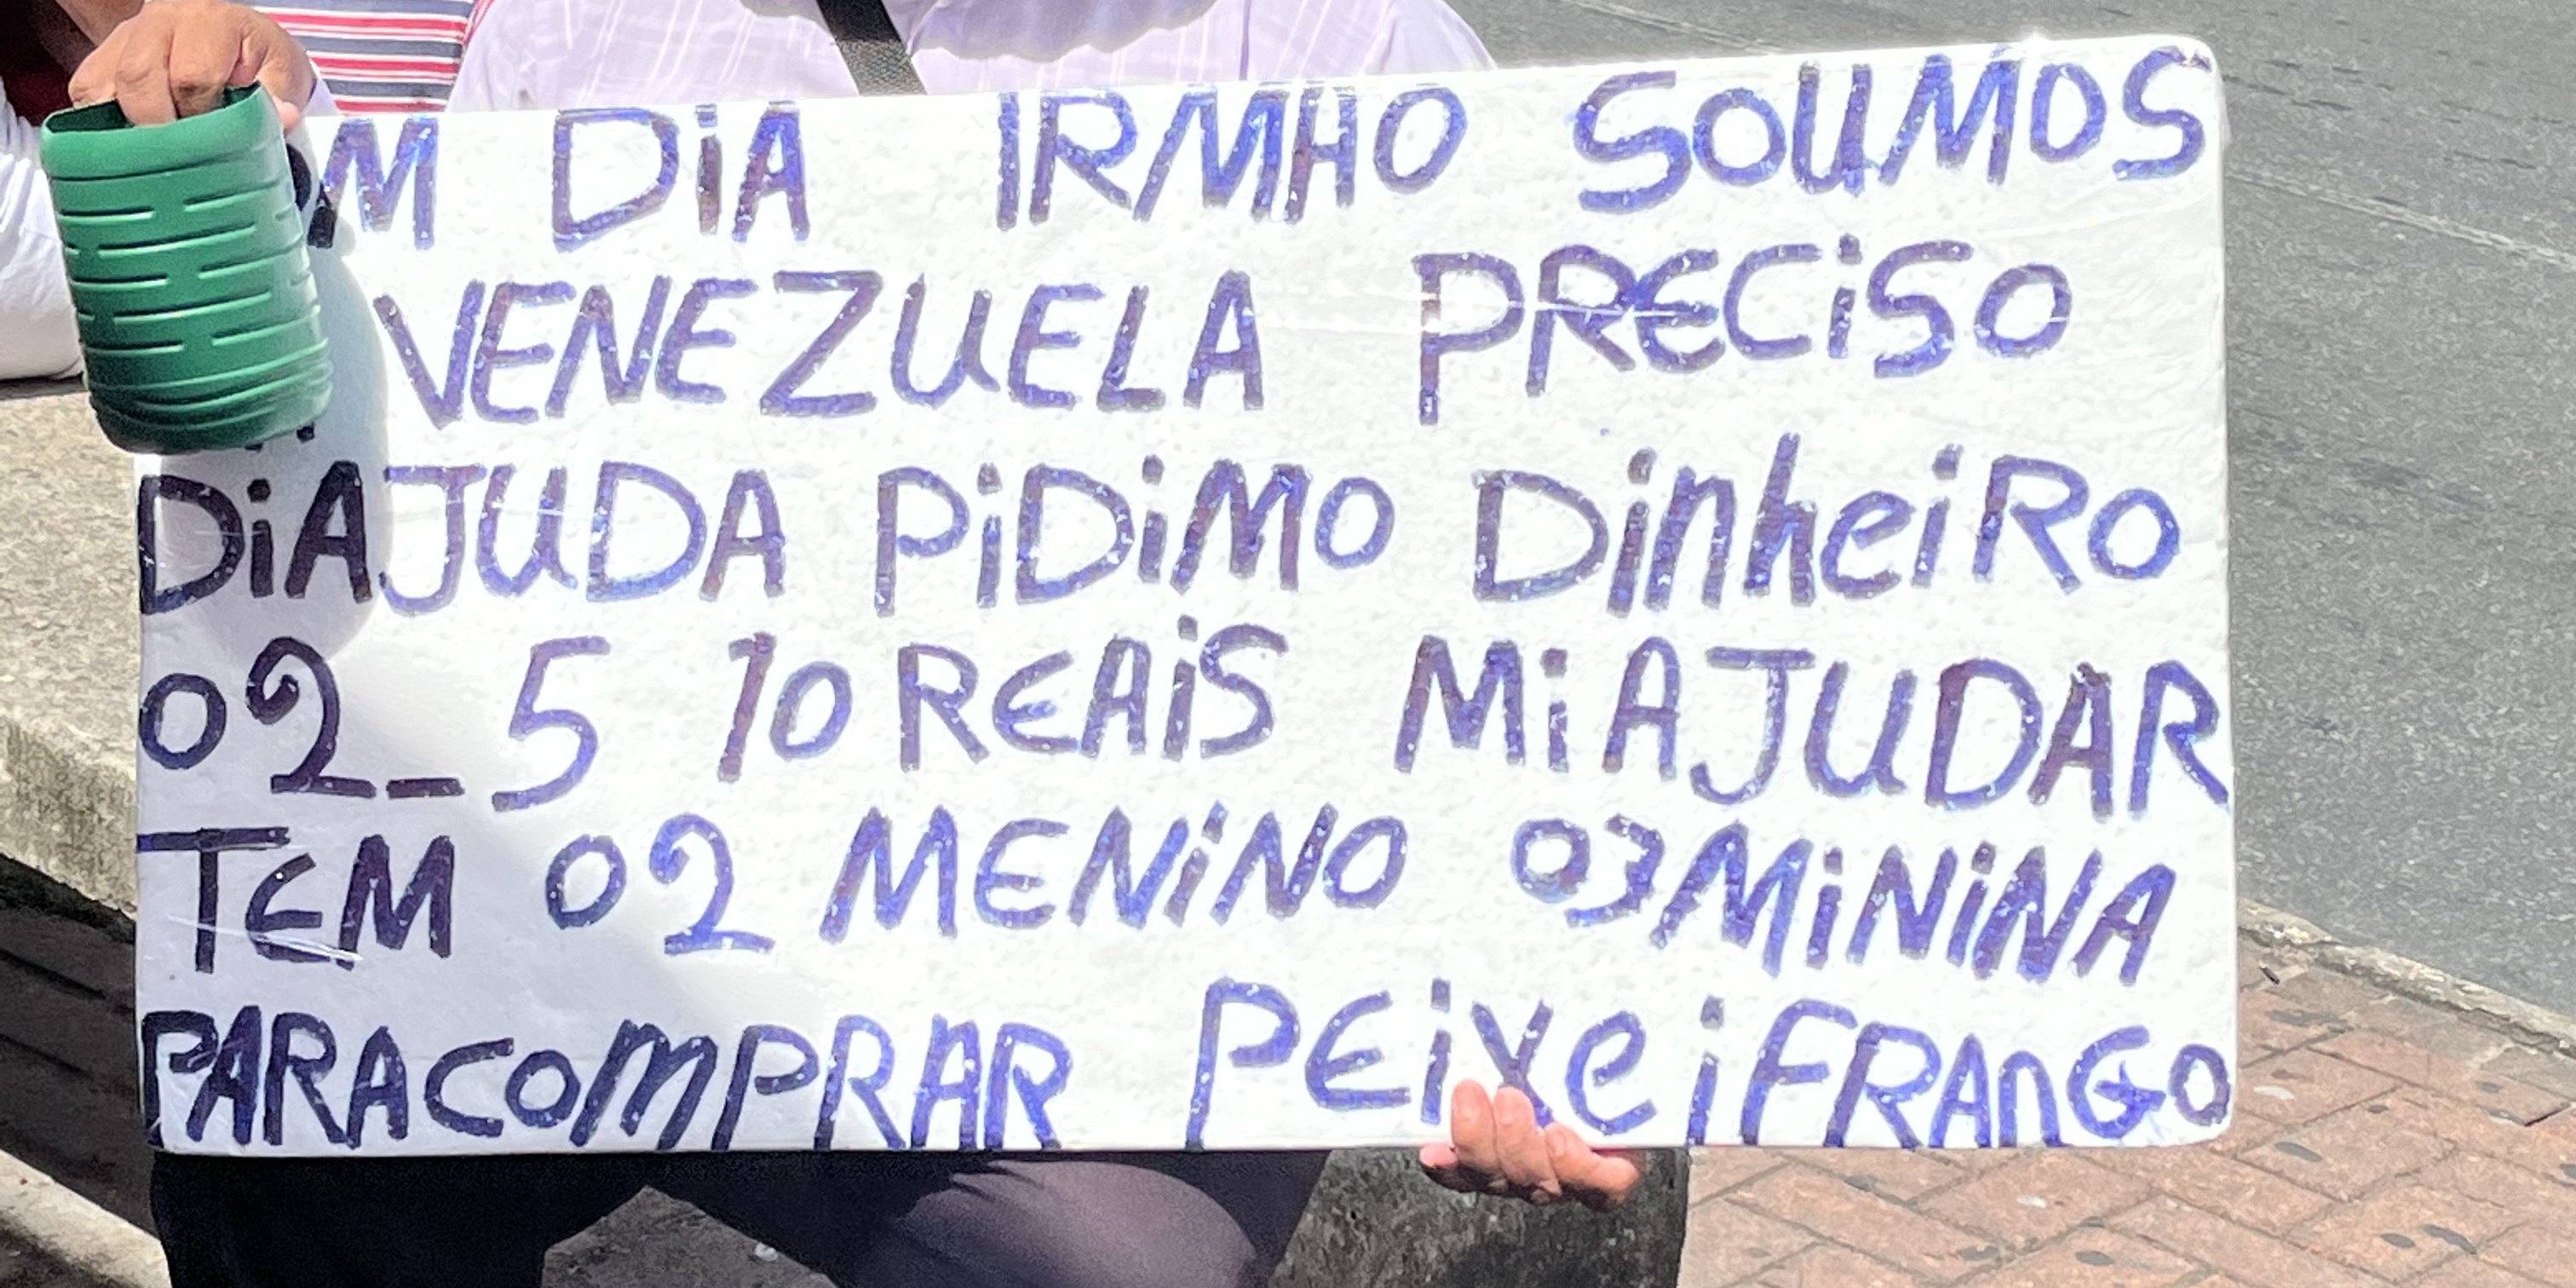 DiA IRMHO SOUMOS
VENEZUELA PRECiSO
DiAJUDA PiDiMO DinheiRO
02_ 5 10 REAiS Mi AJUDAR
TEM 02 MENiNO 03 MiNiNA
PARA COMPRAR PEiXe i FRAnGO